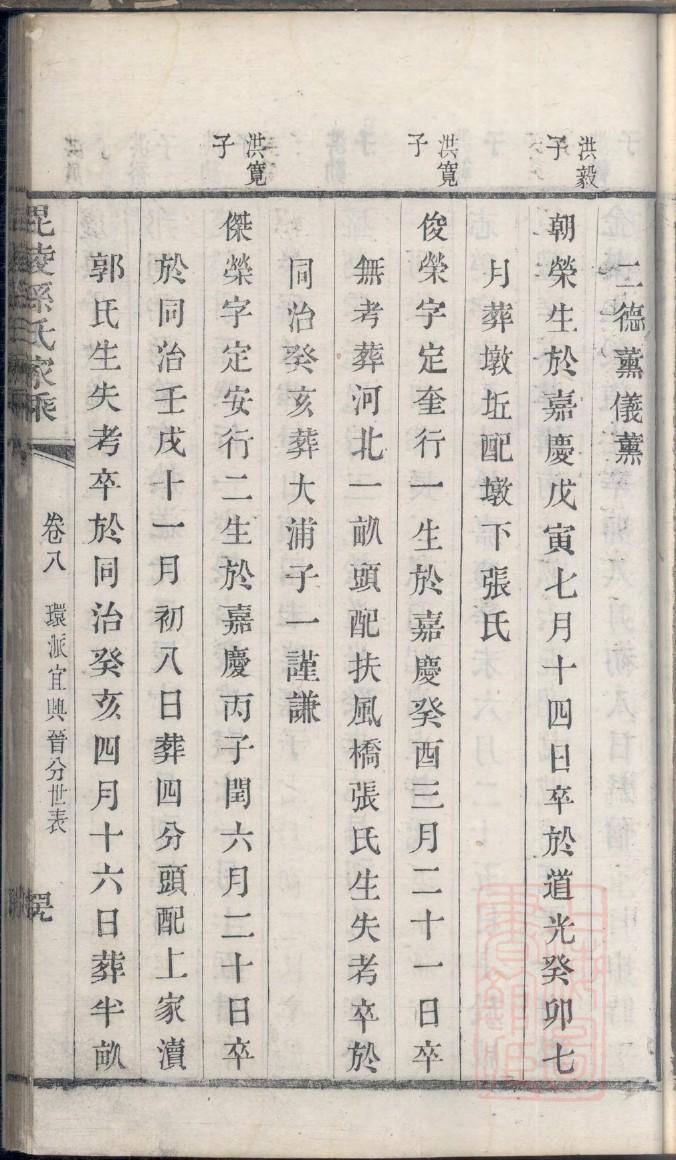 二德薰儀薰
洪毅
子
朝榮生於嘉慶戊寅七月十四日卒於道光癸卯七
月葬墩坵配墩下張氏
洪寬
子
俊榮字定奎行一生於嘉慶癸酉三月二十一日卒
無考葬河北一畝頭配扶風橋張氏生失考卒於
同治癸亥葬大浦子一謹謙
洪寬
子
傑榮字定安行二生於嘉慶丙子閏六月二十日卒
於同治壬戌十一月初八日葬四分頭配上家瀆
郭氏生失考卒於同治癸亥四月十六日葬半畝
毘陵孫氏家乘
卷八
環派宜興晉分世表